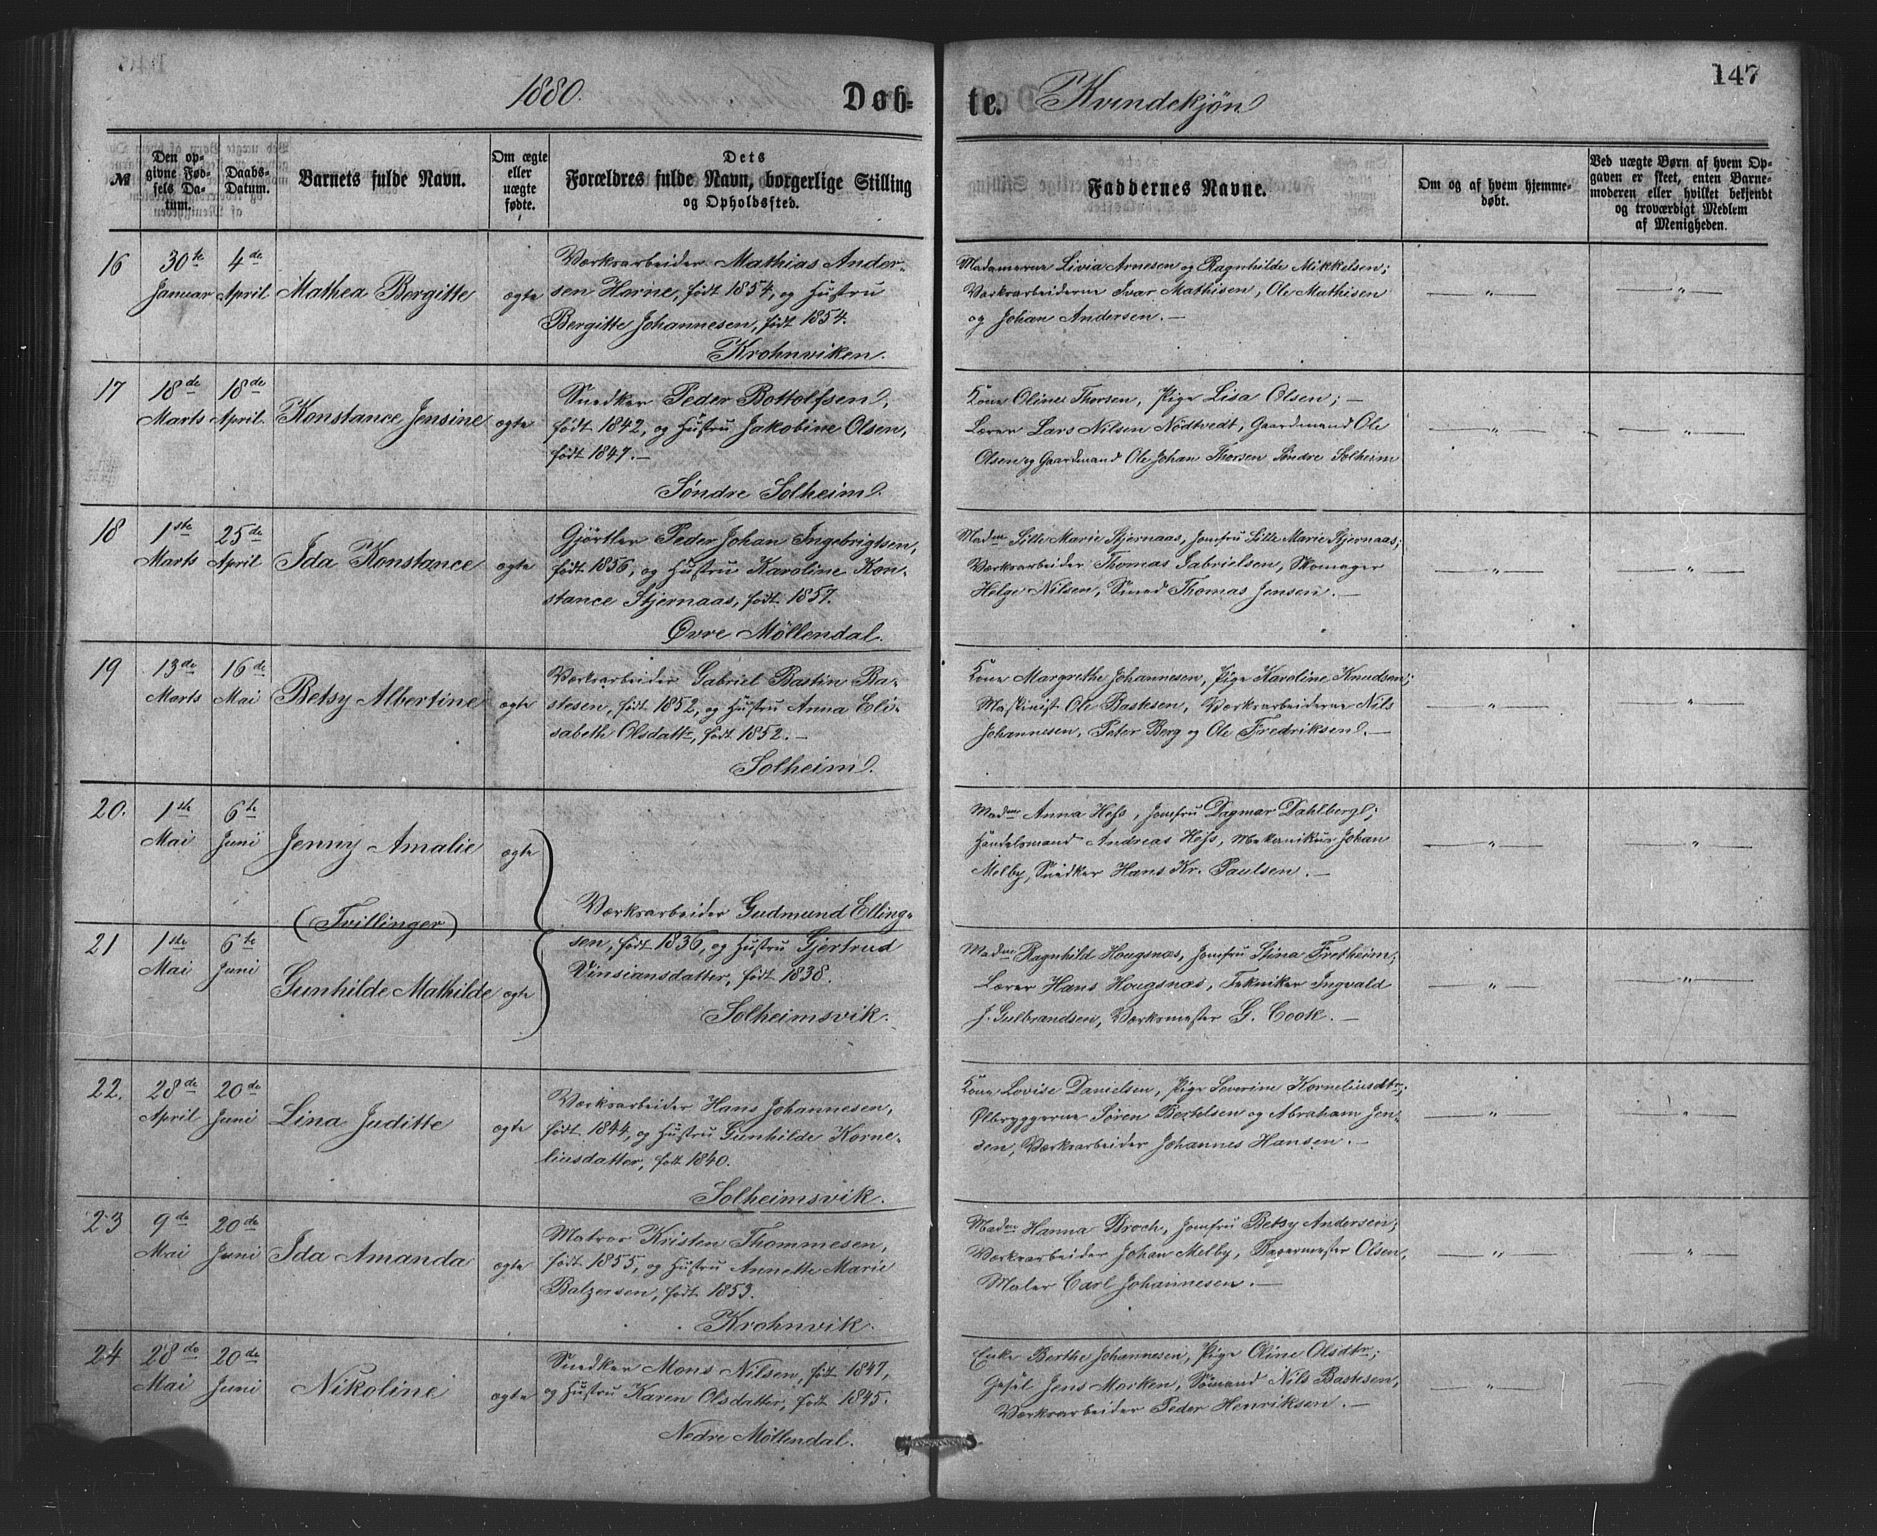 1880. Døb-
№
Den op-
givne Fød-
sels Da-
tum.
Daabs-
Datum.
Barnets fulde Navn.
Om ægte
eller
uægte
fødte.
Dets
Forældres fulde Navn, borgerlige Stilling
og Opholdssted.
16 30te Januar 4de April Mathea Bergitte ægte
Værksarbeider Mathias Ander-
sen Horne, født 1854, og Hustru
Bergitte Johannesen, født 1854.
Krohnviken.
17 18de Marts 18de April. Konstance Jensine ægte
Snedker Peder Bottolfsen,
født 1842, og Hustru Jakobine Olsen,
født 1847. —
Søndre Solheim.
18 1ste Marts 25de April Ida Konstance ægte
Gjørtler Peder Johan Ingebrigtsen,
født 1856, og Hustru Karoline Kon-
stance Stjernaas, født 1857.
Øvre Møllendal.
19 13de Marts 16de Mai Betsy Albertine ægte
Værksarbeider Gabriel Bastin Ba-
stesen, født 1852, og Hustru Anna Eli-
sabeth Olsdattr, født 1852. —
Solheim.
20. 1ste Mai 6te Juni Jenny Amalie ægte
(Tvillinger)
21 1ste Mai 6te Juni Gunhilde Mathilde ægte
Værksarbeider Gudmund Elling-
sen, født 1836, og Hustru Gjertrud
Vinsiansdatter, født 1838.
Solheimsvik.
22. 28de April 20de Juni Lina Juditte ægte
Værksarbeider Hans Johannesen,
født 1844, og Hustru Gunhilde Korne-
liusdatter, født 1840.
Solheimsvik.
23 9de Mai 20de Juni Ida Amanda ægte
Matros Kristen Thommesen,
født 1855, og Hustru Annette Marie
Balzersen, født 1853.
Krohnvik.
24 28de Mai 20de Juni Nikoline ægte
Snedker Mons Nilsen, født 1847,
og Hustru Karen Olsdatter, født 1845.
Nedre Møllendal.
te. Kvindekjøn
147
Faddernes Navne.
Om og af hvem hjemme-
døbt.
Ved uægte Børn af hvem Op-
gaven er skeet, enten Barne-
moderen eller hvilket bekjendt
og troværdigt Medlem
af Menigheden.
Madamerne Livia Arnesen og Ragnhilde Mikkelsen;
Værksarbeiderne Ivar Mathisen, Ole Mathisen
og Johan Andersen. —
— " — — " —
Kone Oline Thorsen, Pige Lisa Olsen; —
Lærer Lars Nilsen Nødtvedt, Gaardmand Ole
Olsen og Gaardmand Ole Johan Thorsen Søndre Solheim
— " — — " —
Madme Sille Marie Stjernaas, Jomfru Lille Marie Stjernaas;
Værksarbeider Thomas Gabrielsen, Skomager
Helge Nilsen, Smed Thomas Jensen. —
— " — — " —
Kone Margrethe Johannesen, Pige Karoline Knudsen;
Maskinist Ole Bastesen, Værksarbeiderne Nils
Johannesen, Peter Berg og Ole Fredriksen. —
— " — — " —
Madme Anna Hess, Jomfru Dagmar Dahlberg;
Handelsmand Andreas Hess, Mekanikus Johan
Melby, Snedker Hans Kr. Paulsen. —
— " — — " —
Madme Ragnhild Hougsnæs, Jomfru Stina Fretheim;
Lærer Hans Hougsnæs, Tekniker Ingvald
J. Gulbrandsen, Værksmester G. Cook. —
— " — — " —
Kone Lovise Danielsen, Pige Severine Korneliusdtr;
Ølbryggerne Søren Bertelsen og Abraham Jen-
sen, Værksarbeider Johannes Hansen. —
— " — — " —
Madme Hanna Broch, Jomfru Betsy Andersen;
Værksarbeider Johan Melby, Bagermester Olsen,
Maler Carl Johannesen. —
— " — — " —
Enke Berthe Johannesen, Pige Oline Olsdtr;
Gesel Jens Morken, Sømand Nils Bastesen,
Værksarbeider Peder Henriksen. —
— " — — " —